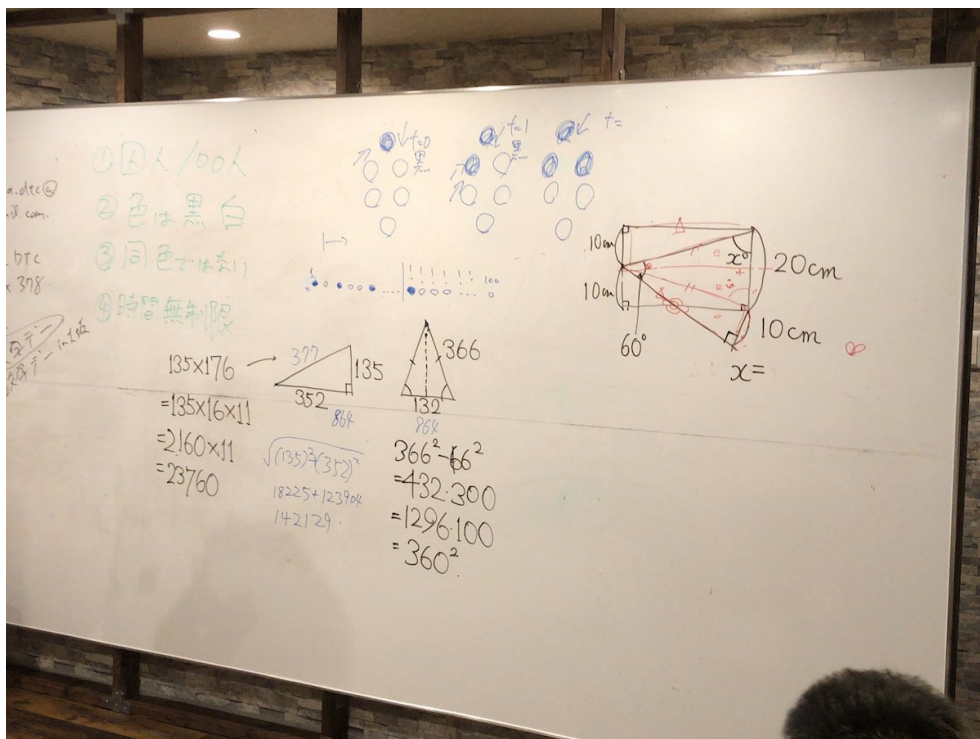 a.dtc@
il.com.
btc
378.
① 囚人 100人
② 色は黒 白
③ 同色ではない
④ 時間無制限
t=0
黒
t=1
黒
t=
100
135×176
=135×16×11
=2160×11
=23760
377
135
352
864
√(135)²+(352)²
18225+123904
142129.
366
132
864
366²-66²
=432.300
=1296.100
=360².
10cm
10cm
60°
x°
20cm
10cm
x=